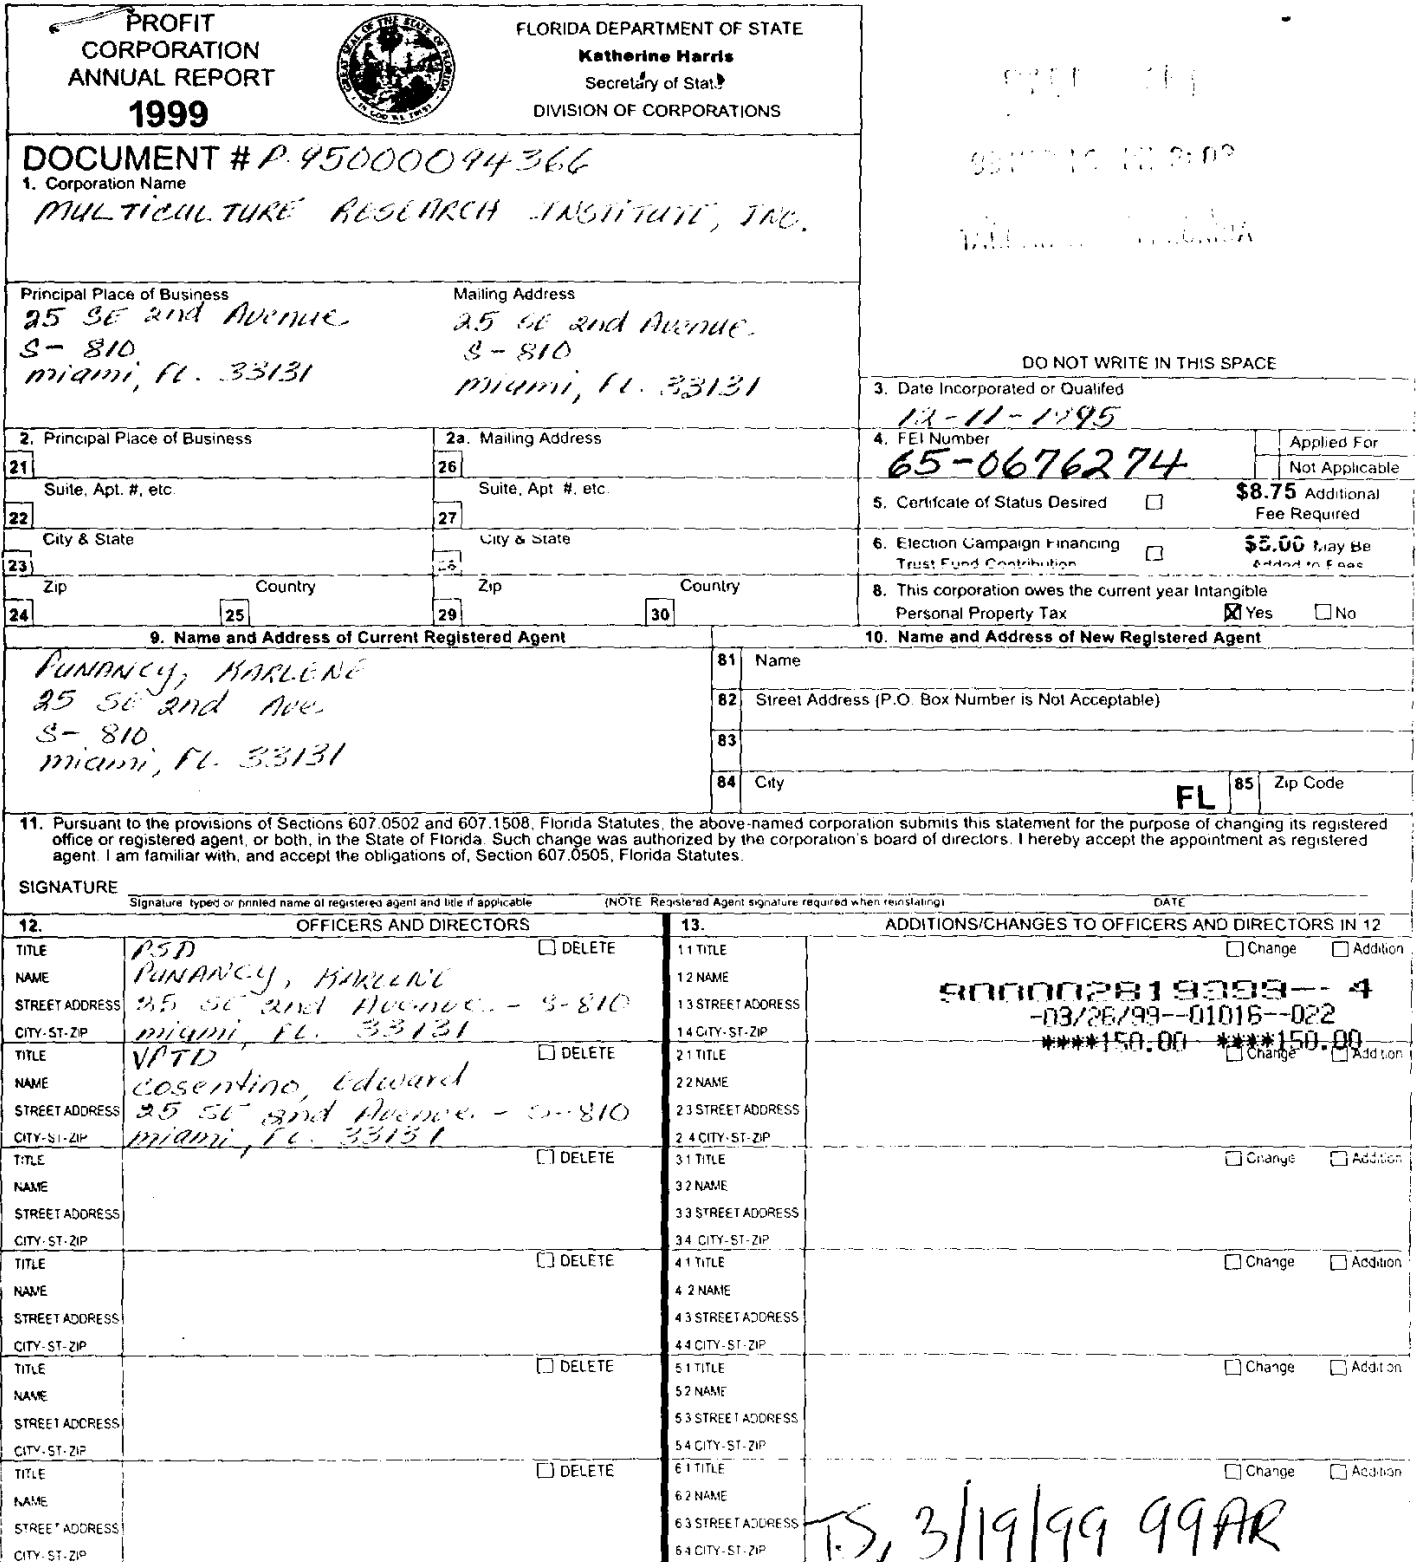 PROFIT
CORPORATION
ANNUAL REPORT
1999
GREAT SEAL OF THE STATE OF FLORIDA
IN GOD WE TRUST
FLORIDA DEPARTMENT OF STATE
Katherine Harris
Secretary of State
DIVISION OF CORPORATIONS
DOCUMENT # P.95000094366
1. Corporation Name
MULTICULTURE RESEARCH INSTITUTE, INC.
Principal Place of Business
25 SE 2nd Avenue
S- 810
Miami, FL. 33131
Mailing Address
25 SE 2nd Avenue.
S- 810
Miami, FL. 33131
DO NOT WRITE IN THIS SPACE
3. Date Incorporated or Qualifed
12-11-1995
2. Principal Place of Business
21
Suite, Apt. #, etc.
22
City & State
23
Zip
Country
24
25
2a. Mailing Address
26
Suite, Apt #, etc.
27
City & State
28
Zip
Country
29
30
4. FEI Number
65-0676274
Applied For
Not Applicable
5. Certifcate of Status Desired ☐
$8.75 Additional
Fee Required
6. Election Campaign Financing
Trust Fund Contribution ☐
$5.00 May Be
Added to Fees
8. This corporation owes the current year Intangible
Personal Property Tax ☒ Yes ☐ No
9. Name and Address of Current Registered Agent
PUNANCY, KARLENE
25 SE 2nd Ave.
S- 810
Miami, FL. 33131
10. Name and Address of New Registered Agent
81 Name
82 Street Address (P.O. Box Number is Not Acceptable)
83
84 City
FL
85 Zip Code
11. Pursuant to the provisions of Sections 607.0502 and 607.1508, Florida Statutes, the above-named corporation submits this statement for the purpose of changing its registered
office or registered agent, or both, in the State of Florida. Such change was authorized by the corporation's board of directors. I hereby accept the appointment as registered
agent. I am familiar with, and accept the obligations of, Section 607.0505, Florida Statutes.
SIGNATURE
Signature typed or printed name of registered agent and title if applicable (NOTE Registered Agent signature required when reinstating) DATE
12. OFFICERS AND DIRECTORS
TITLE PSD ☐ DELETE
NAME PUNANCY, KARLENE
STREET ADDRESS 25 SE 2nd Avenue. - S-810
CITY-ST-ZIP Miami, FL. 33131
TITLE VPTD ☐ DELETE
NAME Cosentino, Edward
STREET ADDRESS 25 SE 2nd Avenue. - S-810
CITY-ST-ZIP Miami, FL. 33131
TITLE ☐ DELETE
NAME
STREET ADDRESS
CITY-ST-ZIP
TITLE ☐ DELETE
NAME
STREET ADDRESS
CITY-ST-ZIP
TITLE ☐ DELETE
NAME
STREET ADDRESS
CITY-ST-ZIP
TITLE ☐ DELETE
NAME
STREET ADDRESS
CITY-ST-ZIP
13. ADDITIONS/CHANGES TO OFFICERS AND DIRECTORS IN 12
1 1 TITLE ☐ Change ☐ Addition
1 2 NAME
1 3 STREET ADDRESS
1 4 CITY-ST-ZIP
900002819399--4
-03/26/99--01016--022
****150.00 ****150.00
2 1 TITLE ☐ Change ☐ Addition
2 2 NAME
2 3 STREET ADDRESS
2 4 CITY-ST-ZIP
3 1 TITLE ☐ Change ☐ Addition
3 2 NAME
3 3 STREET ADDRESS
3 4 CITY-ST-ZIP
4 1 TITLE ☐ Change ☐ Addition
4 2 NAME
4 3 STREET ADDRESS
4 4 CITY-ST-ZIP
5 1 TITLE ☐ Change ☐ Addition
5 2 NAME
5 3 STREET ADDRESS
5 4 CITY-ST-ZIP
6 1 TITLE ☐ Change ☐ Addition
6 2 NAME
6 3 STREET ADDRESS
6 4 CITY-ST-ZIP
T.S, 3/19/99 99AR